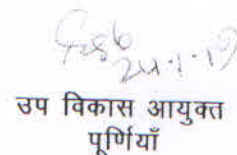 24.1.19
उप विकास आयुक्त
पूर्णियाँ